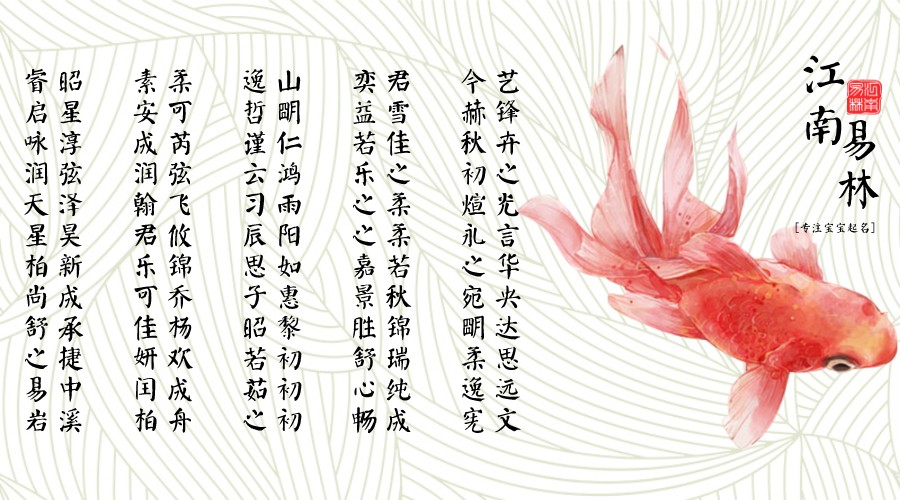 江南
易林
江南易林
[专注宝宝起名]
艺锋卉之光言华央达思远文
今赫秋初煊礼之宛明柔逸宪
君雪佳之柔柔若秋锦瑞纯成
奕益若乐之之嘉景胜舒心畅
山明仁鸿雨阳如惠黎初初初
逸哲谨云习辰思子昭若茹之
柔可芮弦飞攸锦乔杨欢成舟
素安成润翰君乐可佳妍闰柏
昭星淳弦泽昊新成承捷中溪
睿启咏润天星柏尚舒之易岩